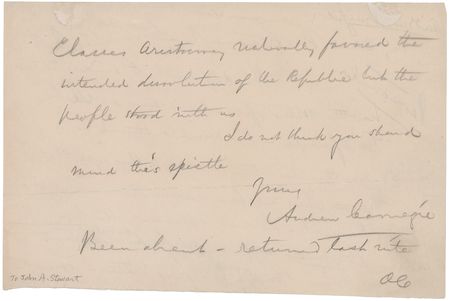 Classes Aristocracy naturally favored the
intended dissolution of the Republic but the
people stood with us
I do not think you should
mind this epistle
Yours
Andrew Carnegie
Been absent – returned last nite
AC
To John A. Stewart